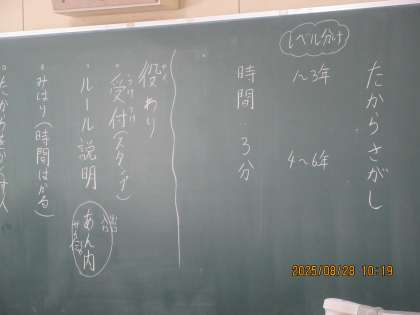 たからさがし
レベル分け
1~3年
4~6年
時間:3分
役あり
・受付(スタンプ)
うけつけ
・ルール説明
あん内
・みはり(時間はかる)
2025/08/28 10:19